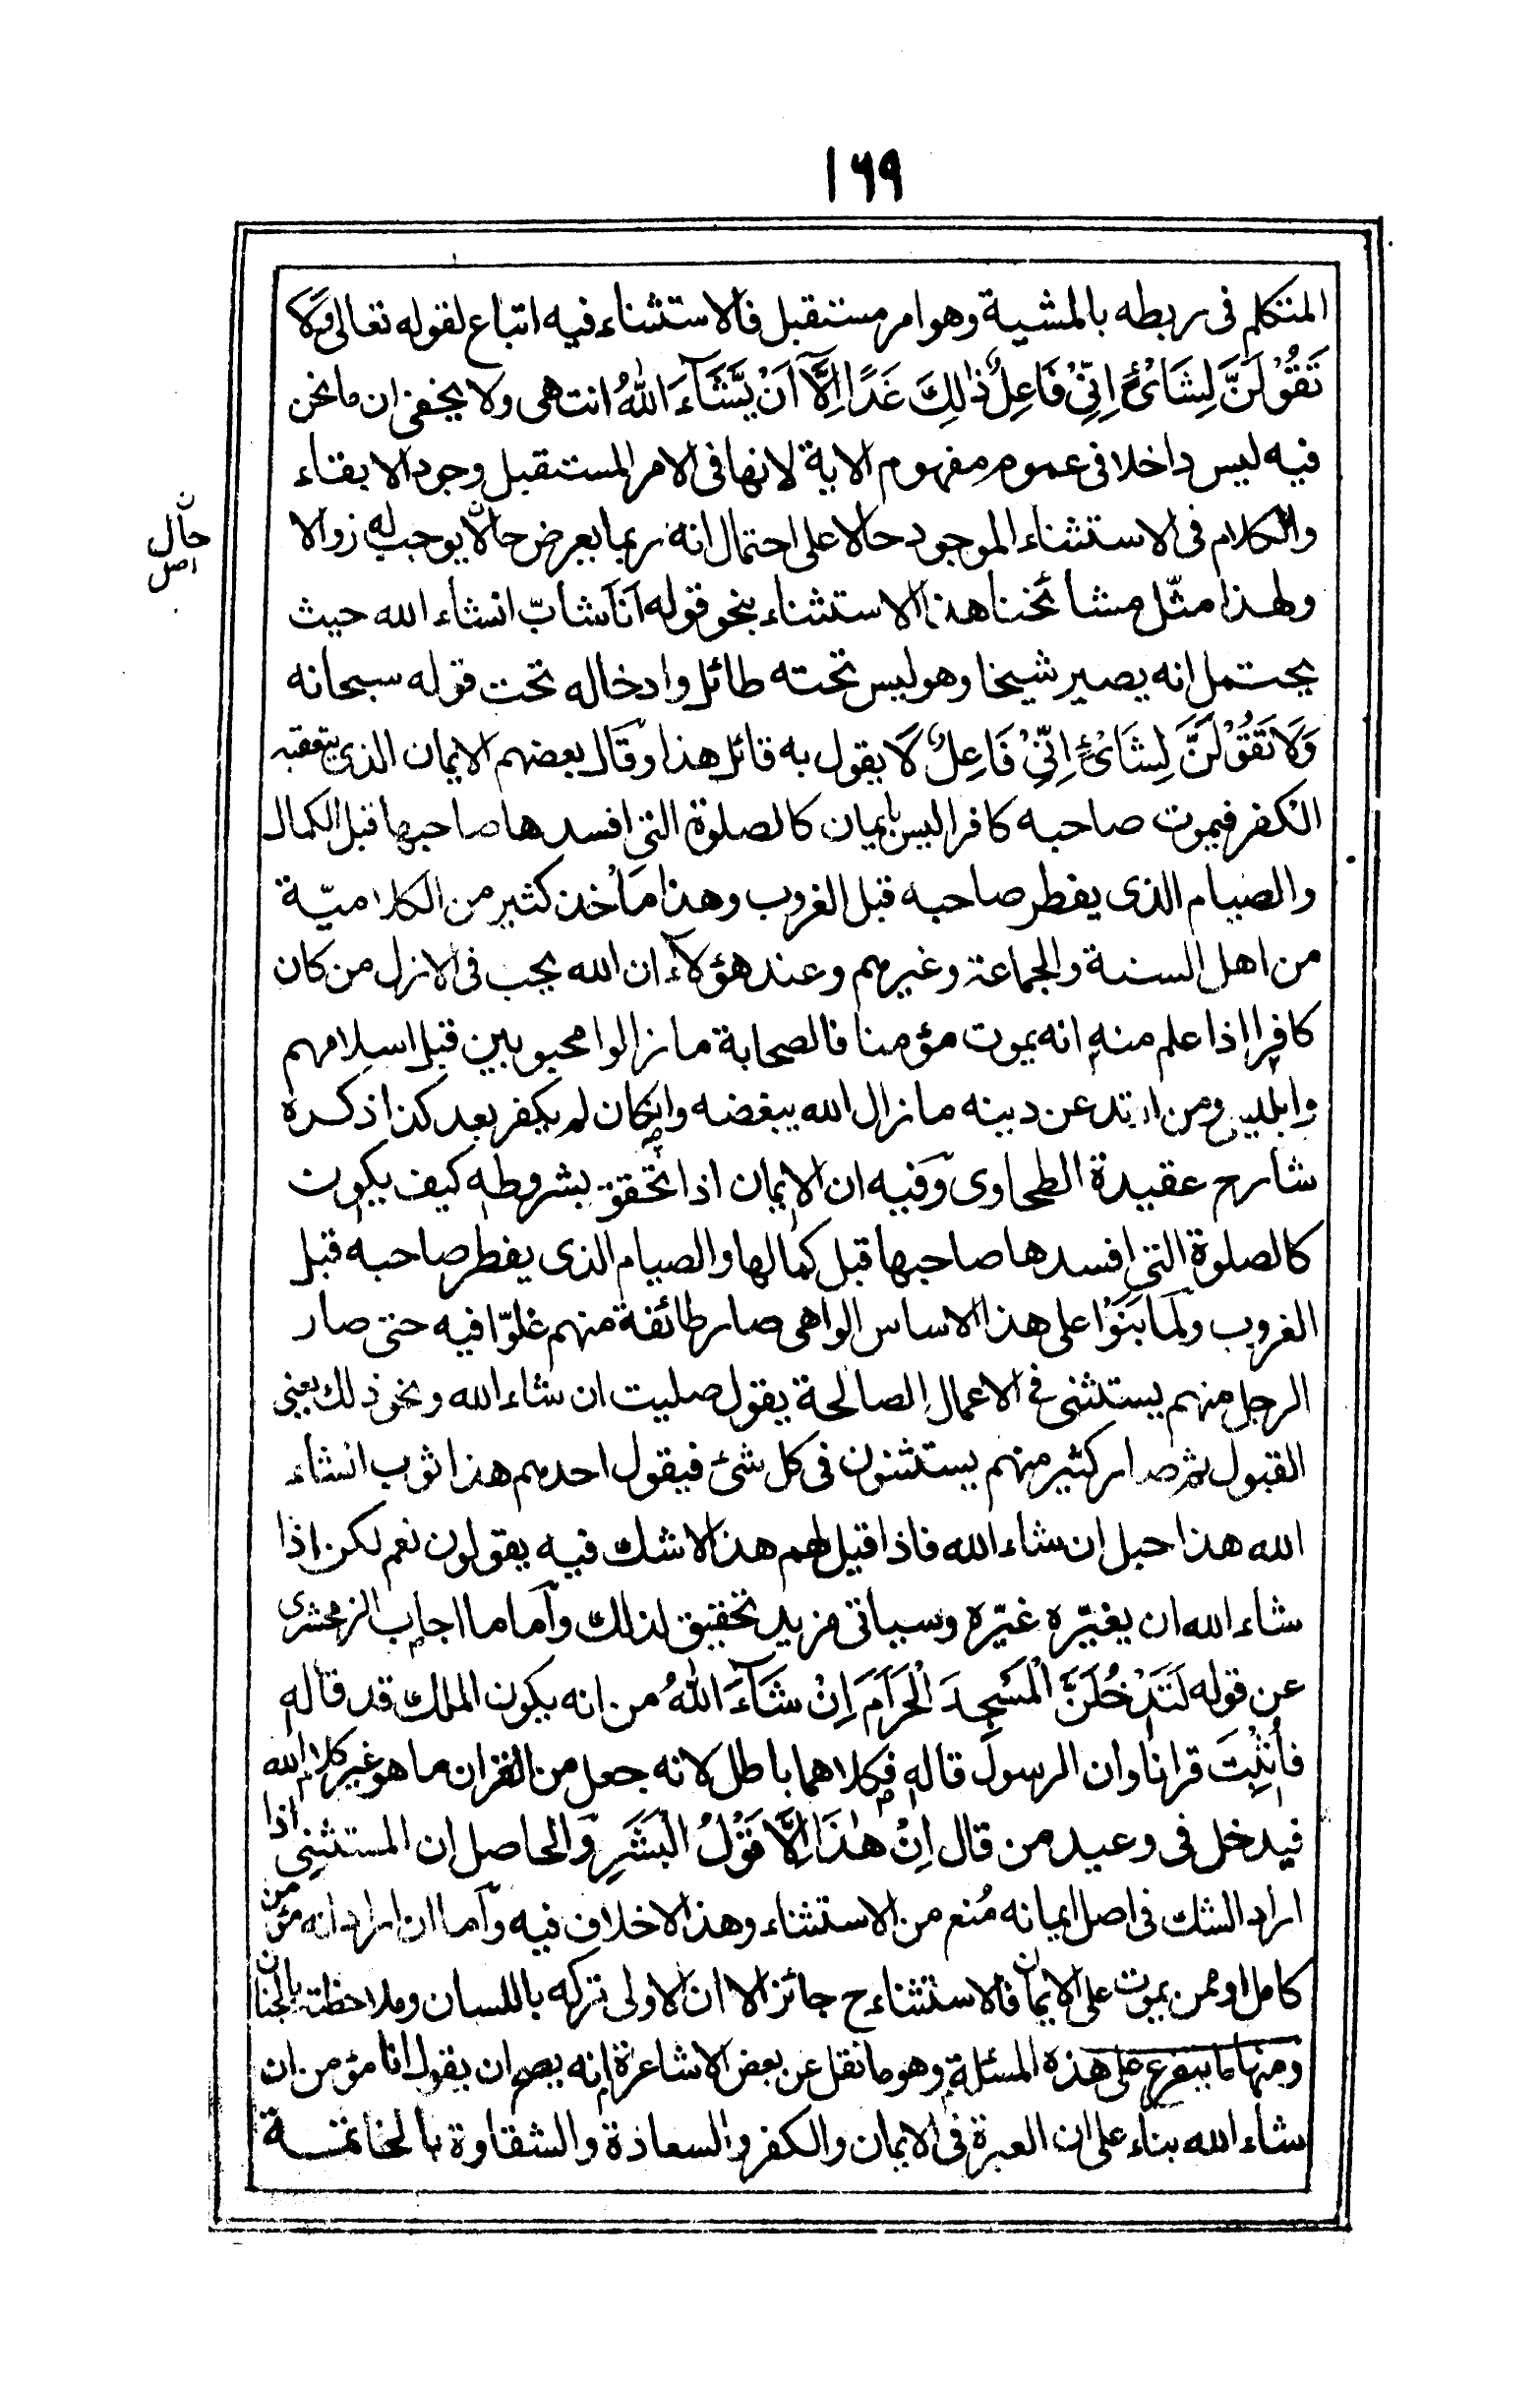 ١٦٩
المتكلم فى ربطه بالمشية وهو امر مستقبل فالاستثناء فيه اتباع لقوله تعالى وَلَا
تَقُوْلَنَّ لِشَائْءٍ اِنِّىْ فَاعِلٌ ذٰلِكَ غَدًا اِلَّآ اَنْ يَّشَآءَ اللّٰهُ انتهى ولا يخفى ان ما نحن
فيه ليس داخلا فى عموم مفهوم الاية لانها فى الامر المستقبل وجود الا بقاء
والكلام فى الاستثناء الموجود حالا على احتمال انه ربما يعرض حالا يوجب له زوالا
حال
اصل
ولهذا مثّل مشائخنا هذا الاستثناء بنحو قوله اَنَا شابّ انشاء الله حيث
يحتمل انه يصير شيخا وهو ليس تحته طائل وادخاله تحت قوله سبحانه
وَلَا تَقُوْلَنَّ لِشَائْءٍ اِنِّىْ فَاعِلٌ لَا يقول به قائل هذا وقال بعضهم الايمان الذى يتعقبه
الكفر فيموت صاحبه كافرا ليس بايمان كالصلوة التى افسدها صاحبها قبل الكمال
والصيام الذى يفطر صاحبه قبل الغروب وهذا مأخذ كثير من الكلاميّة
من اهل السنة والجماعة وغيرهم وعند هؤلاء ان الله يحب فى الازل من كان
كافرا اذا علم منه انه يموت مؤمنا فالصحابة ما زالوا محبوبين قبل اسلامهم
وابليس ومن ارتد عن دينه ما زال الله يبغضه وان كان لم يكفر بعد كذا ذكره
شارح عقيدة الطحاوى وفيه ان الايمان اذا تحقق بشروطه كيف يكون
كالصلوة التى افسدها صاحبها قبل كمالها والصيام الذى يفطر صاحبه قبل
الغروب ولما بَنَوْا على هذا الاساس الواهى صار طائفة منهم غلوّا فيه حتى صار
الرجل منهم يستثنى فى الاعمال الصالحة يقول صليت ان شاء الله ونحو ذلك يعنى
القبول ثم صار كثير منهم يستثنون فى كل شئ فيقول احدهم هذا ثوب انشاء
الله هذا حبل ان شاء الله فاذا قيل لهم هذا لا شك فيه يقولون نعم لكن اذا
شاء الله ان يغيّره غيّره وسياتى مزيد تحقيق لذلك وأما ما اجاب الزمخشرى
عن قوله لَتَدْخُلُنَّ الْمَسْجِدَ الْحَرَامَ اِنْ شَآءَ اللّٰهُ من انه يكون الملك قد قاله
فأثبت قرانا وان الرسول قاله فكلاهما باطل لانه جعل من القران ما هو غير كلام الله
فيدخل فى وعيد من قال اِنْ هٰذَا اِلَّا قَوْلُ الْبَشَرِ والحاصل ان المستثنى اذا
اراد الشك فى اصل ايمانه مُنع من الاستثناء وهذا لا خلاف فيه وأما ان اراد انه مؤمن
كامل او ممن يموت على الايمان فالاستثناء ح جائز الا ان الاولى تركه باللسان وملاحظته بالجنان
ومنها ما يتفرع على هذه المسئلة وهو ما نقل عن بعض الاشاعرة انه يصح ان يقول انا مؤمن ان
شاء الله بناء على ان العبرة فى الايمان والكفر والسعادة والشقاوة بالخاتمة